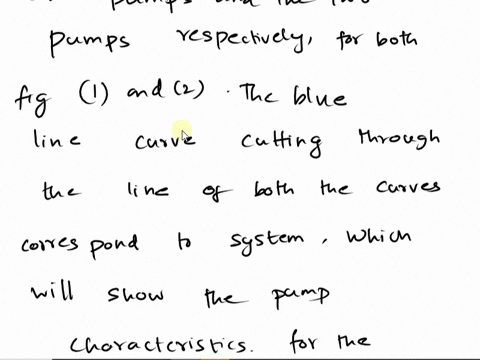 pumps and the two
pumps respectively, for both
fig (1) and (2). The blue
line curve cutting through
the line of both the curves
corres pond to system, which
will show the pump
characteristics. for the